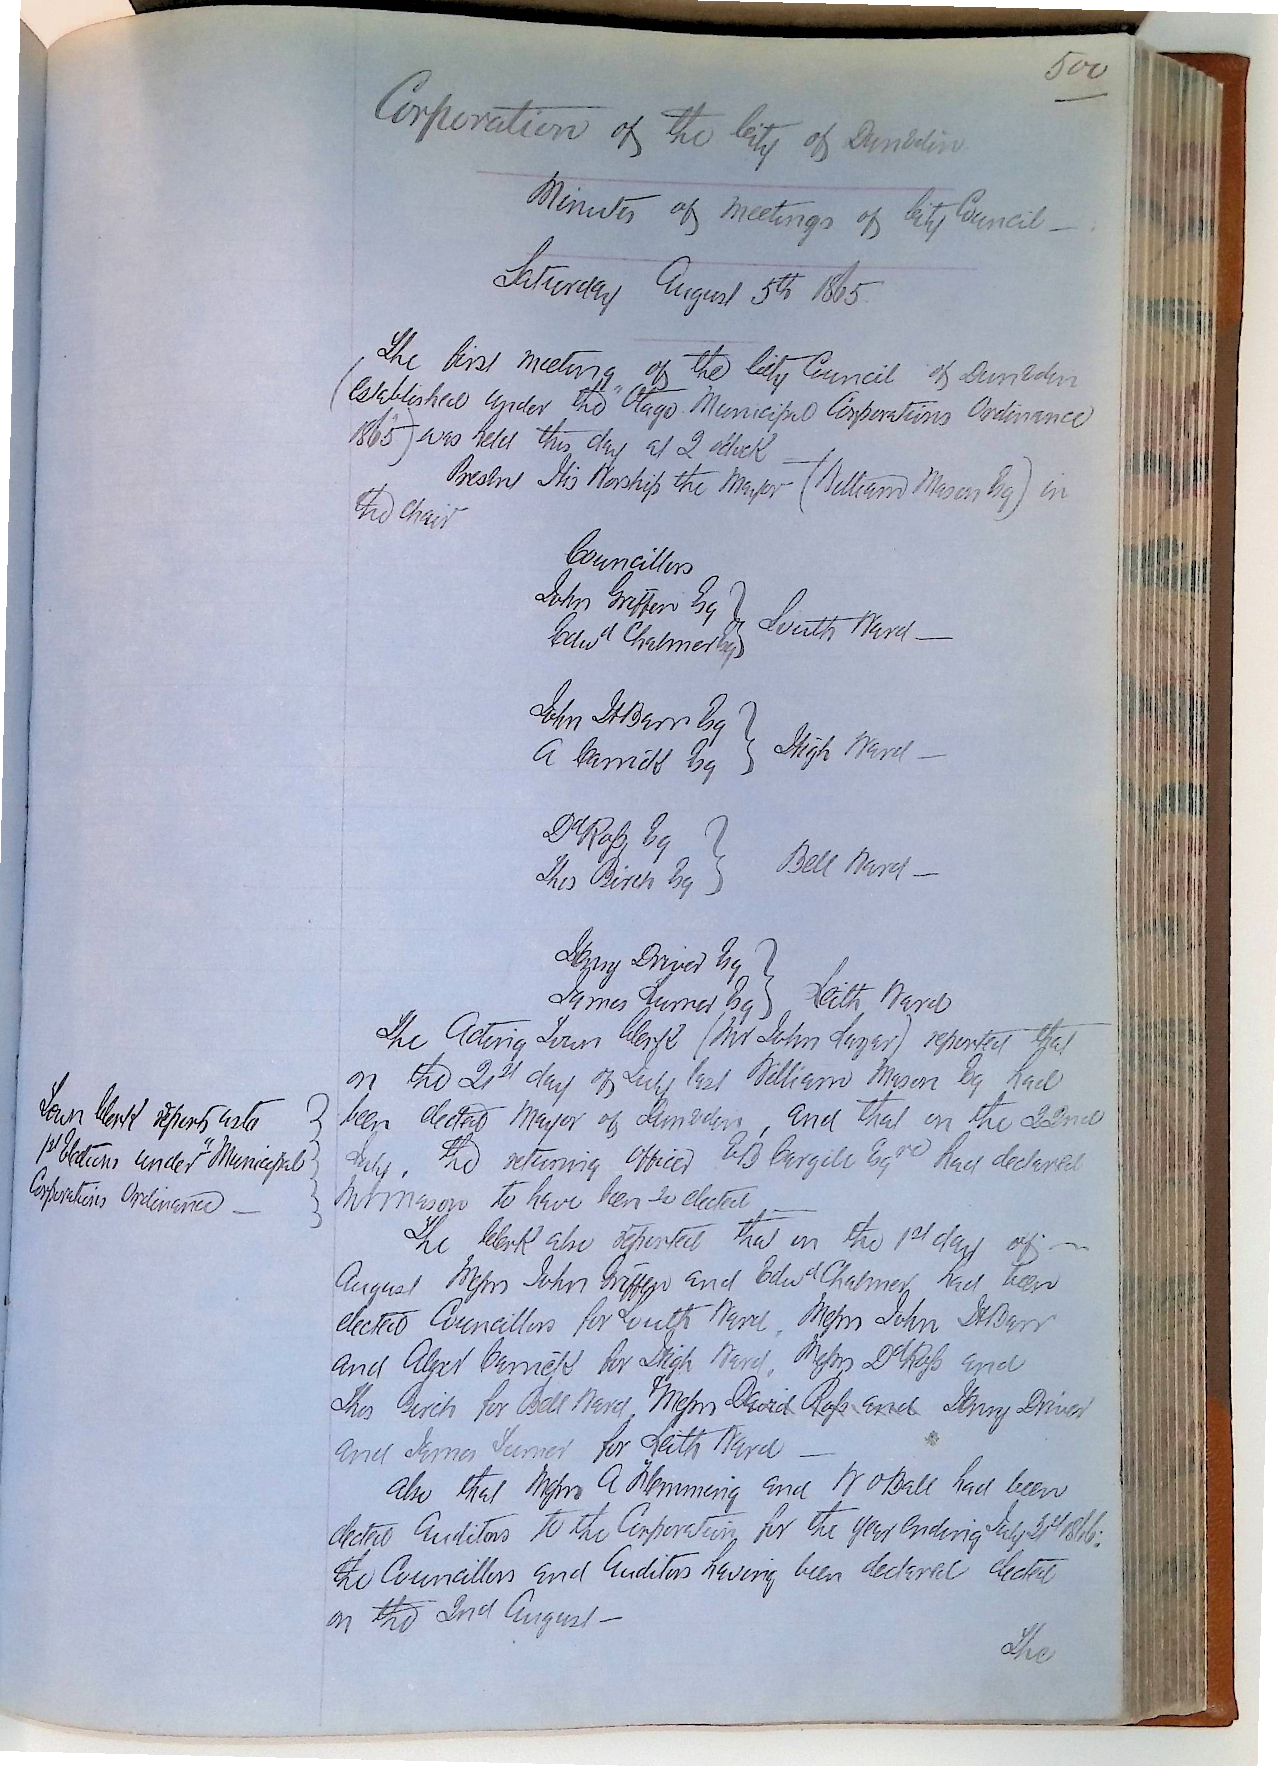 500
Corporation of the City of Dunedin
Minutes of Meetings of City Council —
Saturday August 5th 1865
The first meeting of the City Council of Dunedin
(established under the "Otago Municipal Corporations Ordinance
1865") was held this day at 2 oClock —
Present His Worship the Mayor (William Mason Esq) in
the Chair
Councillors
John Griffen Esq
Edwd Chalmer Esq } South Ward —
John HyBarr Esq
A Carrick Esq } High Ward —
Dd Ross Esq
Thos Birch Esq } Bell Ward —
Henry Driver Esq
James Turner Esq } Leith Ward
The Acting Town Clerk (Mr John) reported that
on the 21st day of July last William Mason Esq had
been elected Mayor of Dunedin, and that on the 22nd
July, the returning Officer EB Cargill Esqre had declared
Mr Mason to have been so elected —
Town Clerk reports as to
1st Elections under "Municipal
Corporations Ordinance —
The Clerk also reported that on the 1st day of —
August Messrs John Griffen and Edwd Chalmer had been
elected Councillors for South Ward, Messrs John HyBarr
and Alexr Carrick for High Ward, Messrs Dd Ross and
Thos Birch for Bell Ward, Messrs David Ross and Henry Driver
and James Turner for Leith Ward —
also that Messrs A Flemming and W O Ball had been
elected Auditors to the Corporation for the year ending July 21st 1866:
the Councillors and Auditors having been declared elected
on the 2nd August —
The